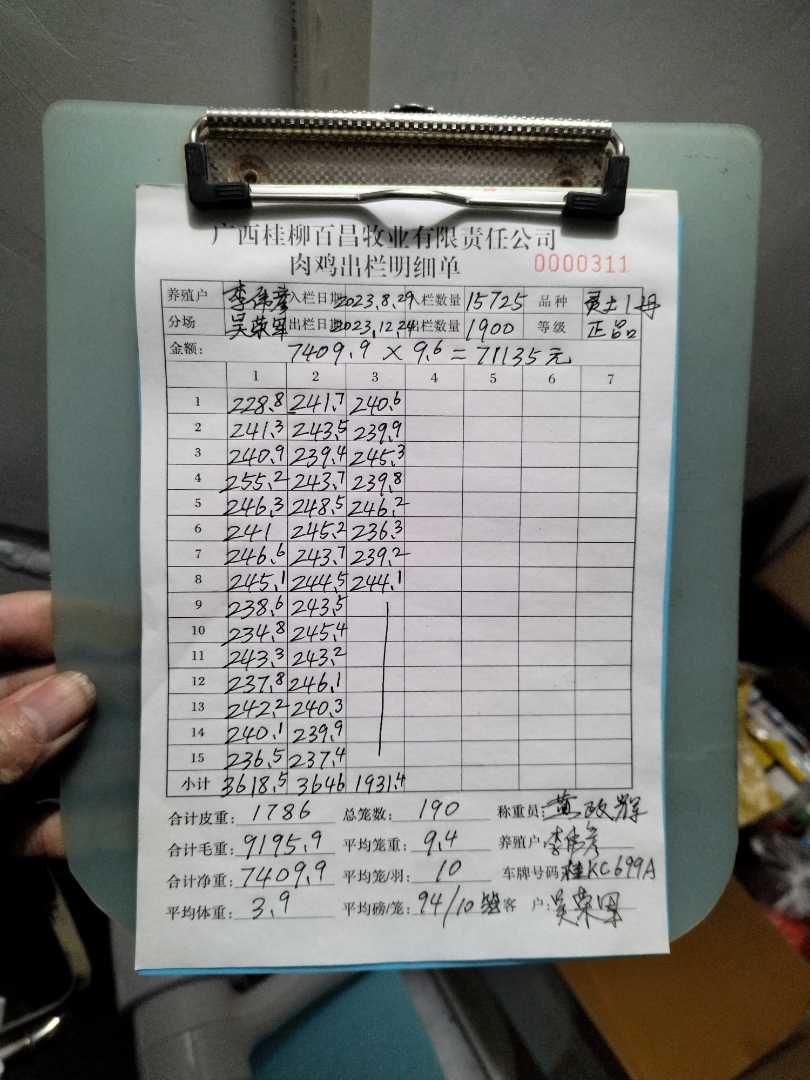 广西桂柳百昌牧业有限责任公司
肉鸡出栏明细单 0000311
养殖户 李伟彦 入栏日期 2023.8.29 入栏数量 15725 品种 灵土1号
分场 吴荣军 出栏日期 2023.12.24 出栏数量 1900 等级 正品
金额: 7409.9 × 9.6 = 71135元
1 2 3 4 5 6 7
1 228.8 241.7 240.6
2 241.3 243.5 239.9
3 240.9 239.4 245.3
4 255.2 243.7 239.8
5 246.3 248.5 246.2
6 241 245.2 236.3
7 246.6 243.7 239.2
8 245.1 244.5 244.1
9 238.6 243.5
10 234.8 245.4
11 243.3 243.2
12 237.8 246.1
13 242.2 240.3
14 240.1 239.9
15 236.5 237.4
小计 3618.5 3646 1931.4
合计皮重: 1786 总笼数: 190 称重员: 黄政辉
合计毛重: 9195.9 平均笼重: 9.4 养殖户: 李伟彦
合计净重: 7409.9 平均笼/羽: 10 车牌号码: 桂KC699A
平均体重: 3.9 平均磅/笼: 94/10 客 户: 吴荣军